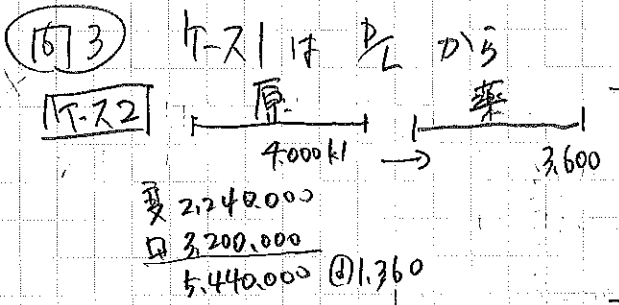 問3 ケース1は P/L から
ケース2 原 薬
4,000kl → 3,600
変 2,240,000
固 3,200,000
5,440,000 @1,360